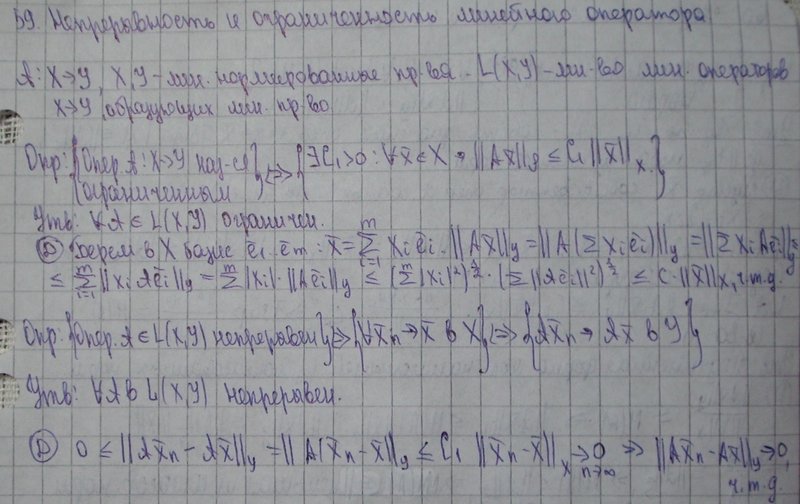 59. Непрерывность и ограниченность линейного оператора
A: X→Y, X,Y - лин. нормированные пр-ва. L(X,Y) - мн-во лин. операторов
X→Y, образующих лин. пр-во
Опр: {Опер. A: X→Y наз-ся ограниченным} ⇔ {∃C₁>0: ∀x̄∈X → ||Ax̄||_y ≤ C₁||x̄||_x.}
Утв: ∀A ∈ L(X,Y) ограничен.
Ⓓ Берем в X базис ē₁..ēm: x̄=∑_{i=1}^{m} xᵢēᵢ. ||Ax̄||_y=||A(∑xᵢēᵢ)||_y=||∑xᵢAēᵢ||_y ≤
≤ ∑_{i=1}^{m}||xᵢAēᵢ||_y = ∑^{m}|xᵢ|·||Aēᵢ||_y ≤ (∑^{m}|xᵢ|²)^{½}·(∑||Aēᵢ||²)^{½} ≤ C·||x̄||_x, ч.т.д.
Опр: {Опер. A∈L(X,Y) непрерывен} ⇔ {∀x̄n→x̄ в X} ⇔ {Ax̄n→Ax̄ в Y}
Утв: ∀A в L(X,Y) непрерывен.
Ⓓ 0 ≤ ||Ax̄n-Ax̄||_y = ||A(x̄n-x̄)||_y ≤ C₁ ||x̄n-x̄||_x →_{n→∞} 0 ⇒ ||Ax̄n-Ax̄||_y→0,
ч.т.д.